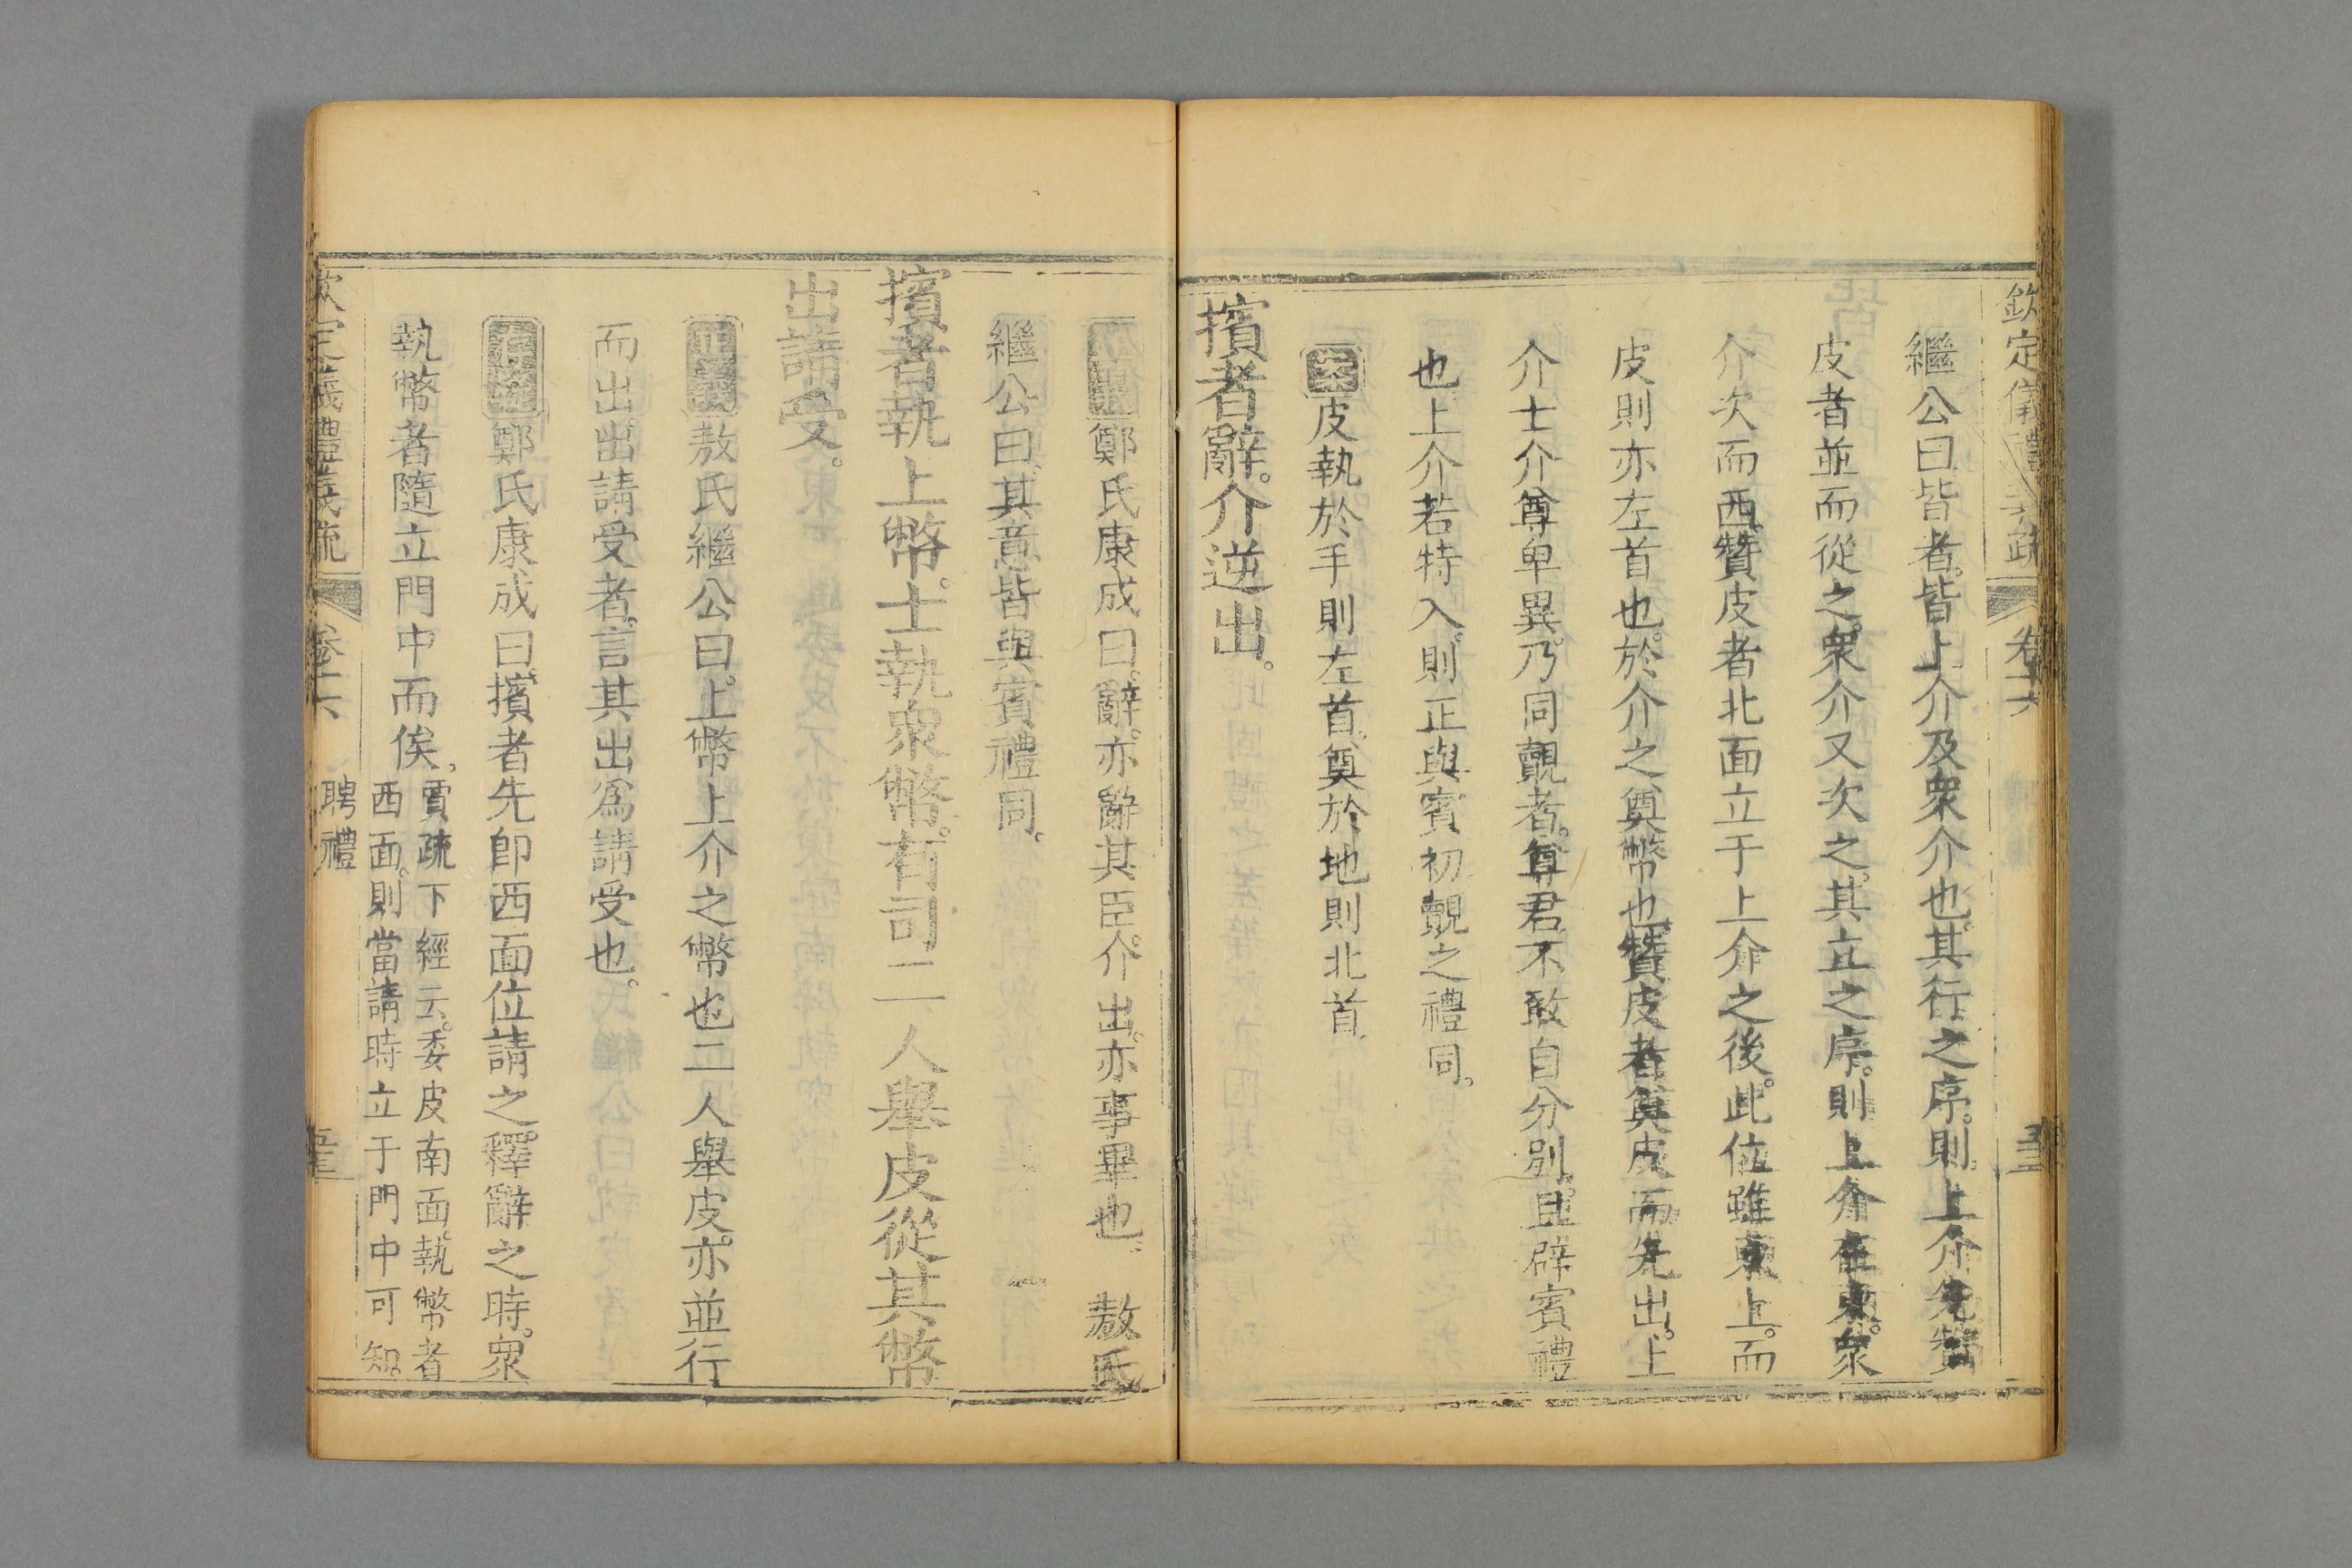 欽定儀禮義疏 卷十六
繼公曰皆者皆上介及衆介也其行之序則上介先贊
皮者並而從之衆介又次之其立之序則上介在東衆
介次而西贊皮者北面立于上介之後此位雖東上而
皮則亦左首也於介之奠幣也贊皮者奠皮而先出上
介士介尊卑異乃同覿者尊君不敢自分別且辟賓禮
也上介若特入則正與賓初覿之禮同
案皮執於手則左首奠於地則北首
擯者辭介逆出
鄭氏康成曰辭亦辭其臣介出亦事畢也 敖氏
繼公曰其意皆與賓禮同
擯者執上幣士執衆幣有司二人舉皮從其幣
出請受
正義敖氏繼公曰上幣上介之幣也二人舉皮亦並行
而出出請受者言其出爲請受也
鄭氏康成曰擯者先即西面位請之釋辭之時衆
執幣者隨立門中而俟
賈疏下經云委皮南面執幣者
西面則當請時立于門中可知
欽定儀禮義疏 卷十六 聘禮